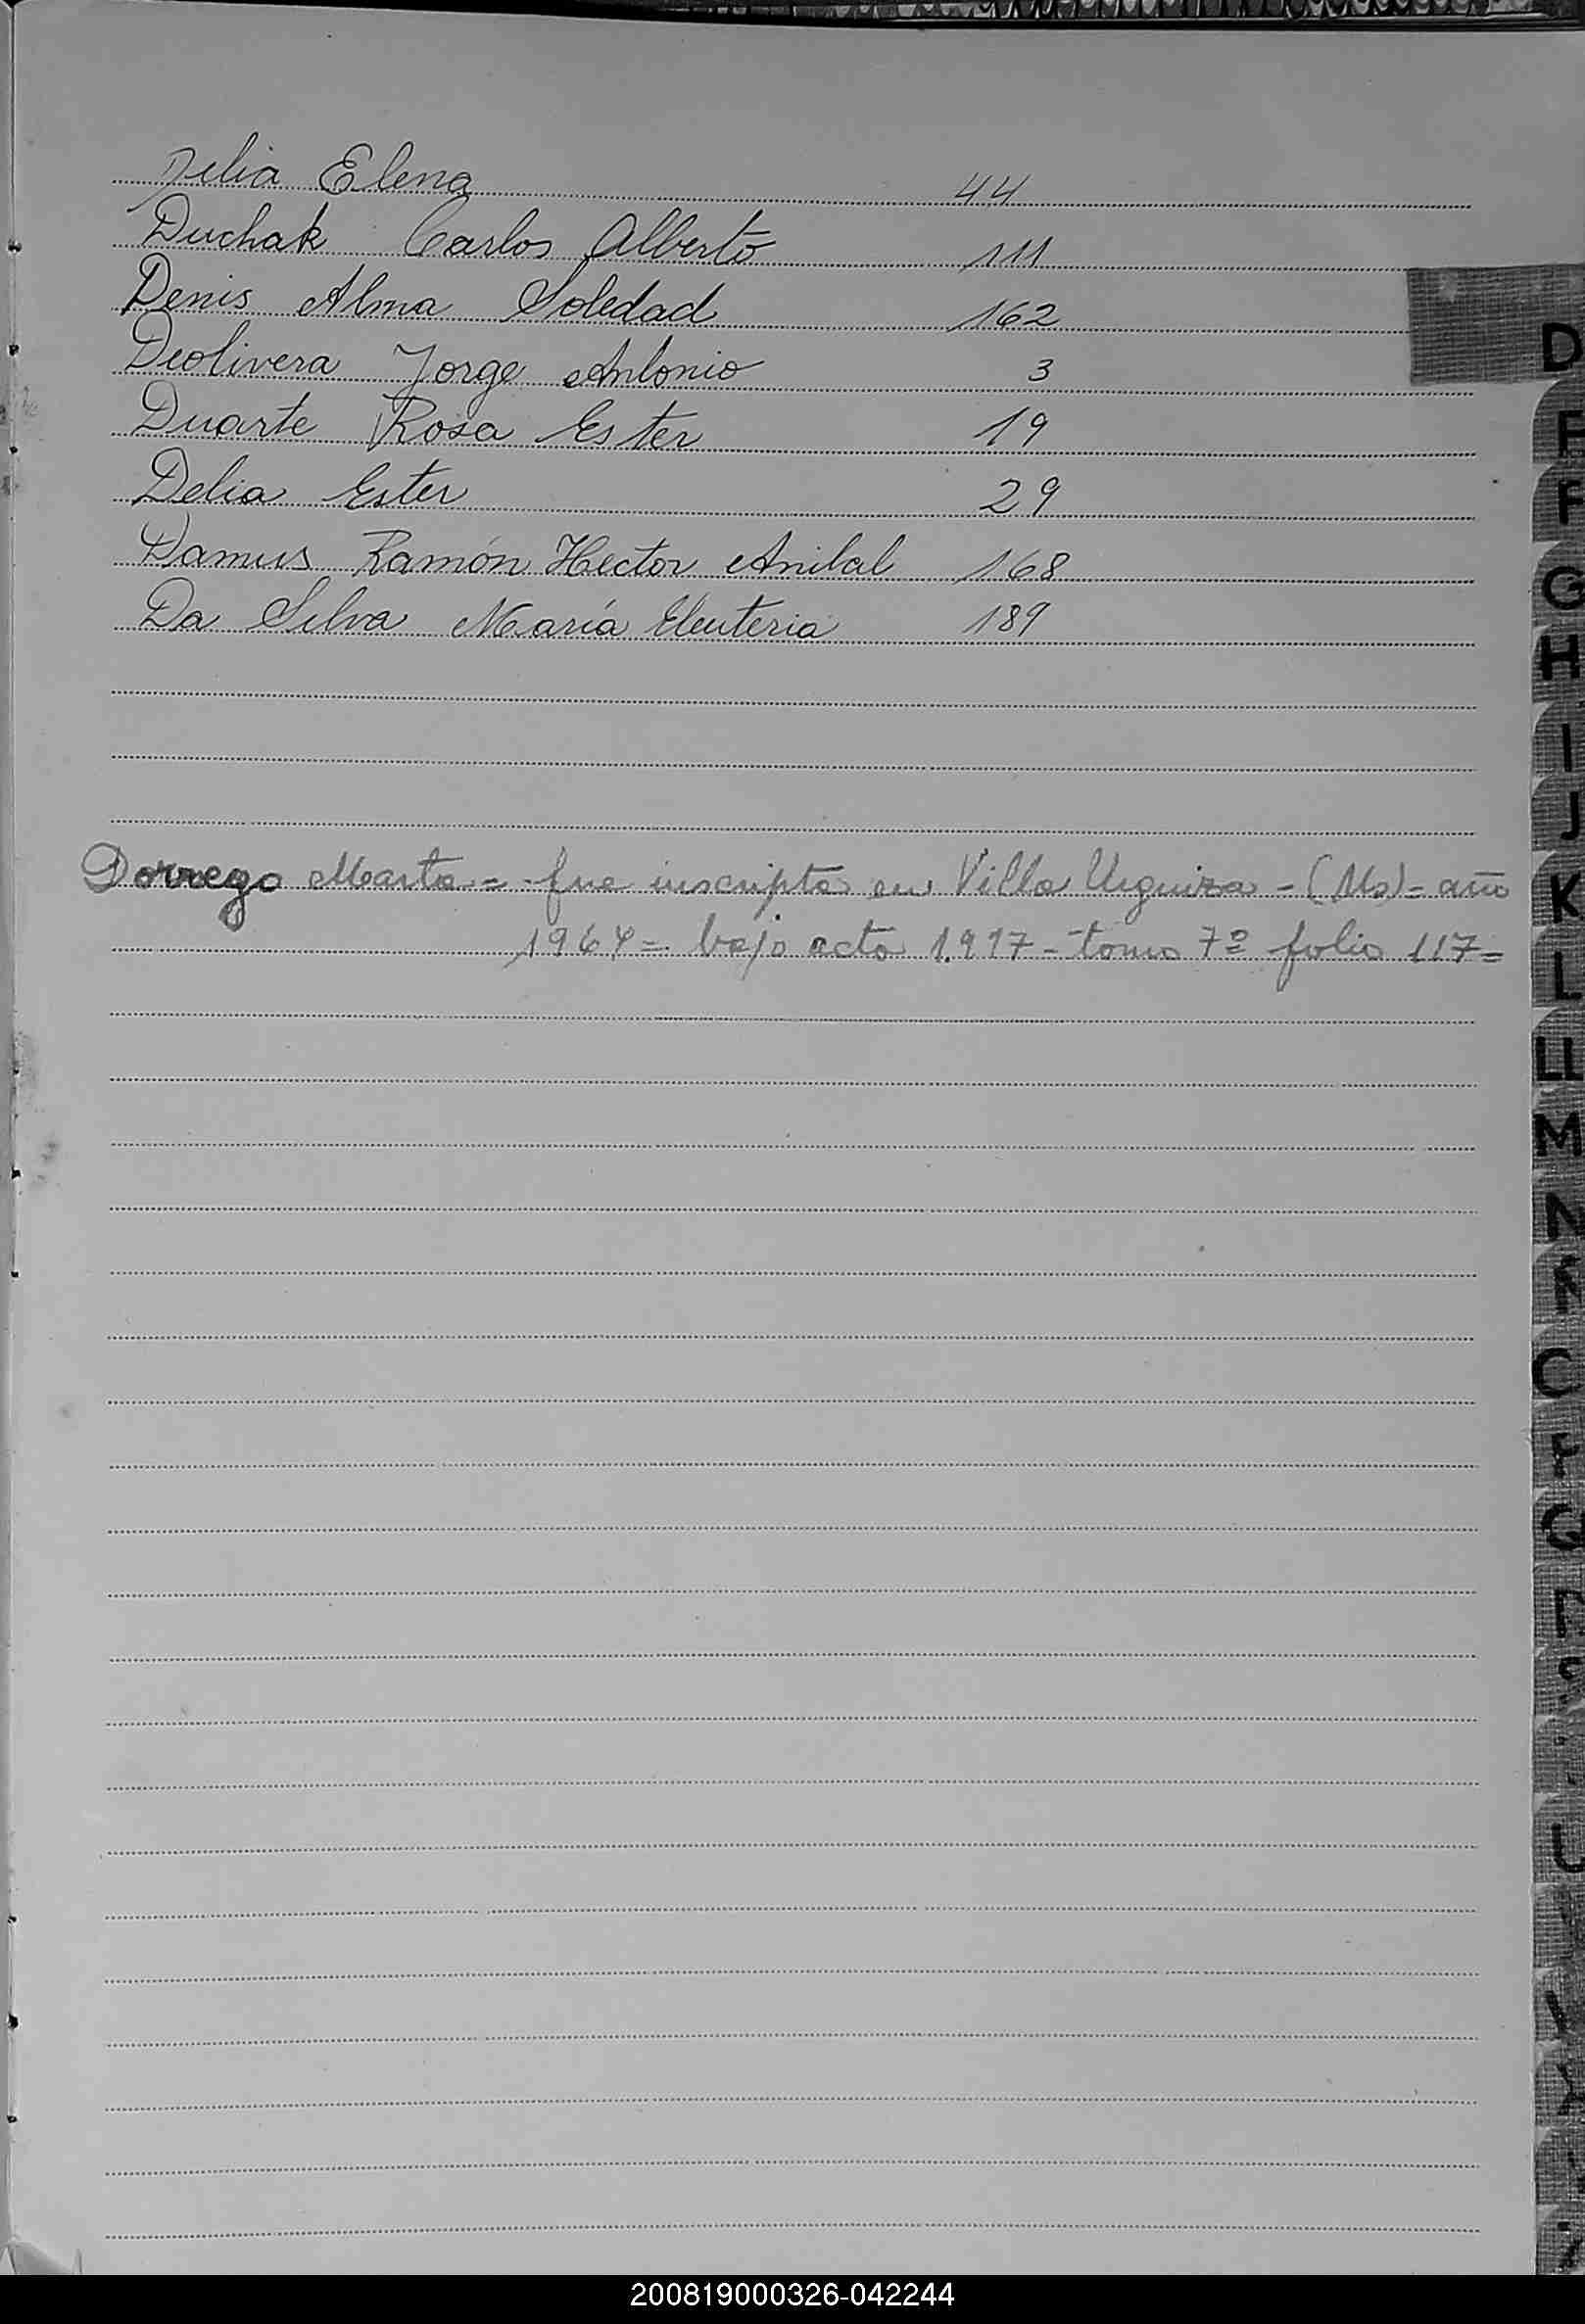 Delia Elena 44
Duchak Carlos Alberto 111
Denis Alma Soledad 162
Deolivera Jorge Antonio 3
Duarte Rosa Ester 19
Delia Ester 29
Damus Ramón Hector Anibal 168
Da Silva María Eleuteria 189
Dorrego Marta = fue inscripta en Villa Urquiza - (Ms) = año
1964 = bajo acta 1.917 - tomo 7º folio 117 =
D
F
F
G
H
I
J
K
L
Ll
M
N
Ñ
200819000326-042244